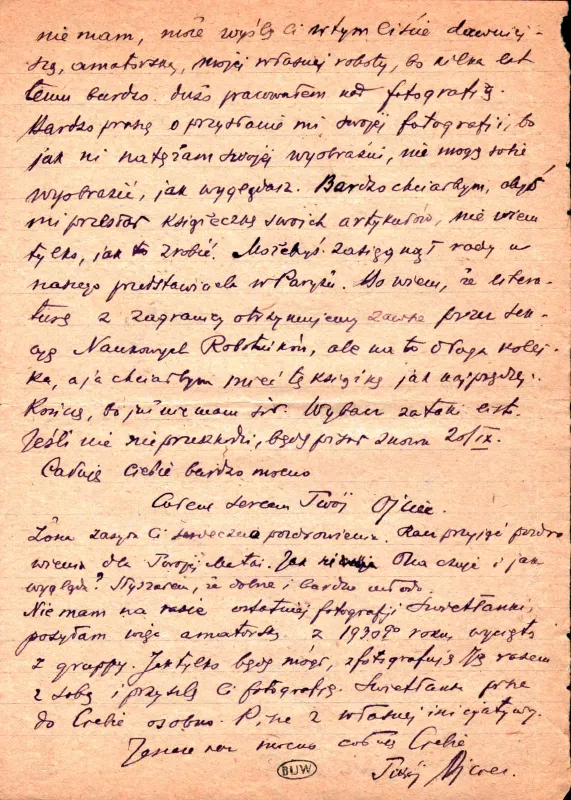 nie mam, może wyślę Ci w tym liście dawniej-
szą, amatorską, mojej własnej roboty, bo kilka lat
temu bardzo dużo pracowałem nad fotografią.
Bardzo proszę o przysłanie mi swojej fotografii, bo
jak ni natężam swojej wyobraźni, nie mogę sobie
wyobrazić, jak wyglądasz. Bardzo chciałbym, abyś
mi przesłał książeczkę swoich artykułów, nie wiem
tylko, jak to zrobić. Możebyś zasięgnął rady u
naszego przedstawiciela w Paryżu. Bo wiem, że litera-
turę z zagranicy otrzymujemy zawsze przez Sek-
cję Naukowych Robotników, ale na to długa kolej-
ka, a ja chciałbym mieć tę książkę jak najprędzej.
Kończę, bo już nie mam sił. Wybacz za taki list.
Jeśli nic nie przeszkodzi, będę pisał znowu 20/IX.
Całuję Ciebie bardzo mocno
Całem sercem Twój Ojciec.
Żona zasyła Ci serdeczne pozdrowienia. Racz przyjąć pozdro
wienia dla Twojej Matki. Jak Ona czuje i jak
wygląda? Słyszałem, że dobrze i bardzo młodo.
Nie mam na razie ostatniej fotografji Swietłanki,
posyłam więc amatorską z 1930go roku, wyciętą
z gruppy. Jak tylko będę mógł, sfotografuję Ją razem
z sobą i przyślę Ci fotografję. Swietłanka pisze
do Ciebie osobno. Pisze z własnej inicjatywy.
Jeszcze raz mocno całuję Ciebie
Twój Ojciec.
BUW